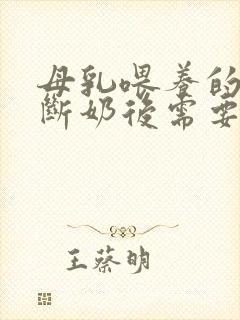 母乳喂养的
斷奶後需要
王蔡明